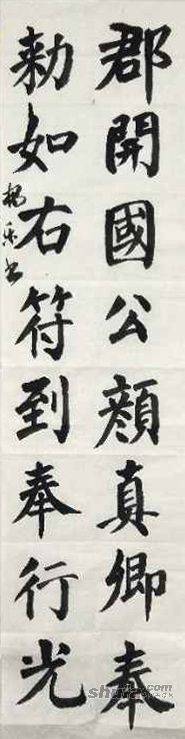 郡開國公顔真卿奉
勑如右符到奉行光
楊乐书